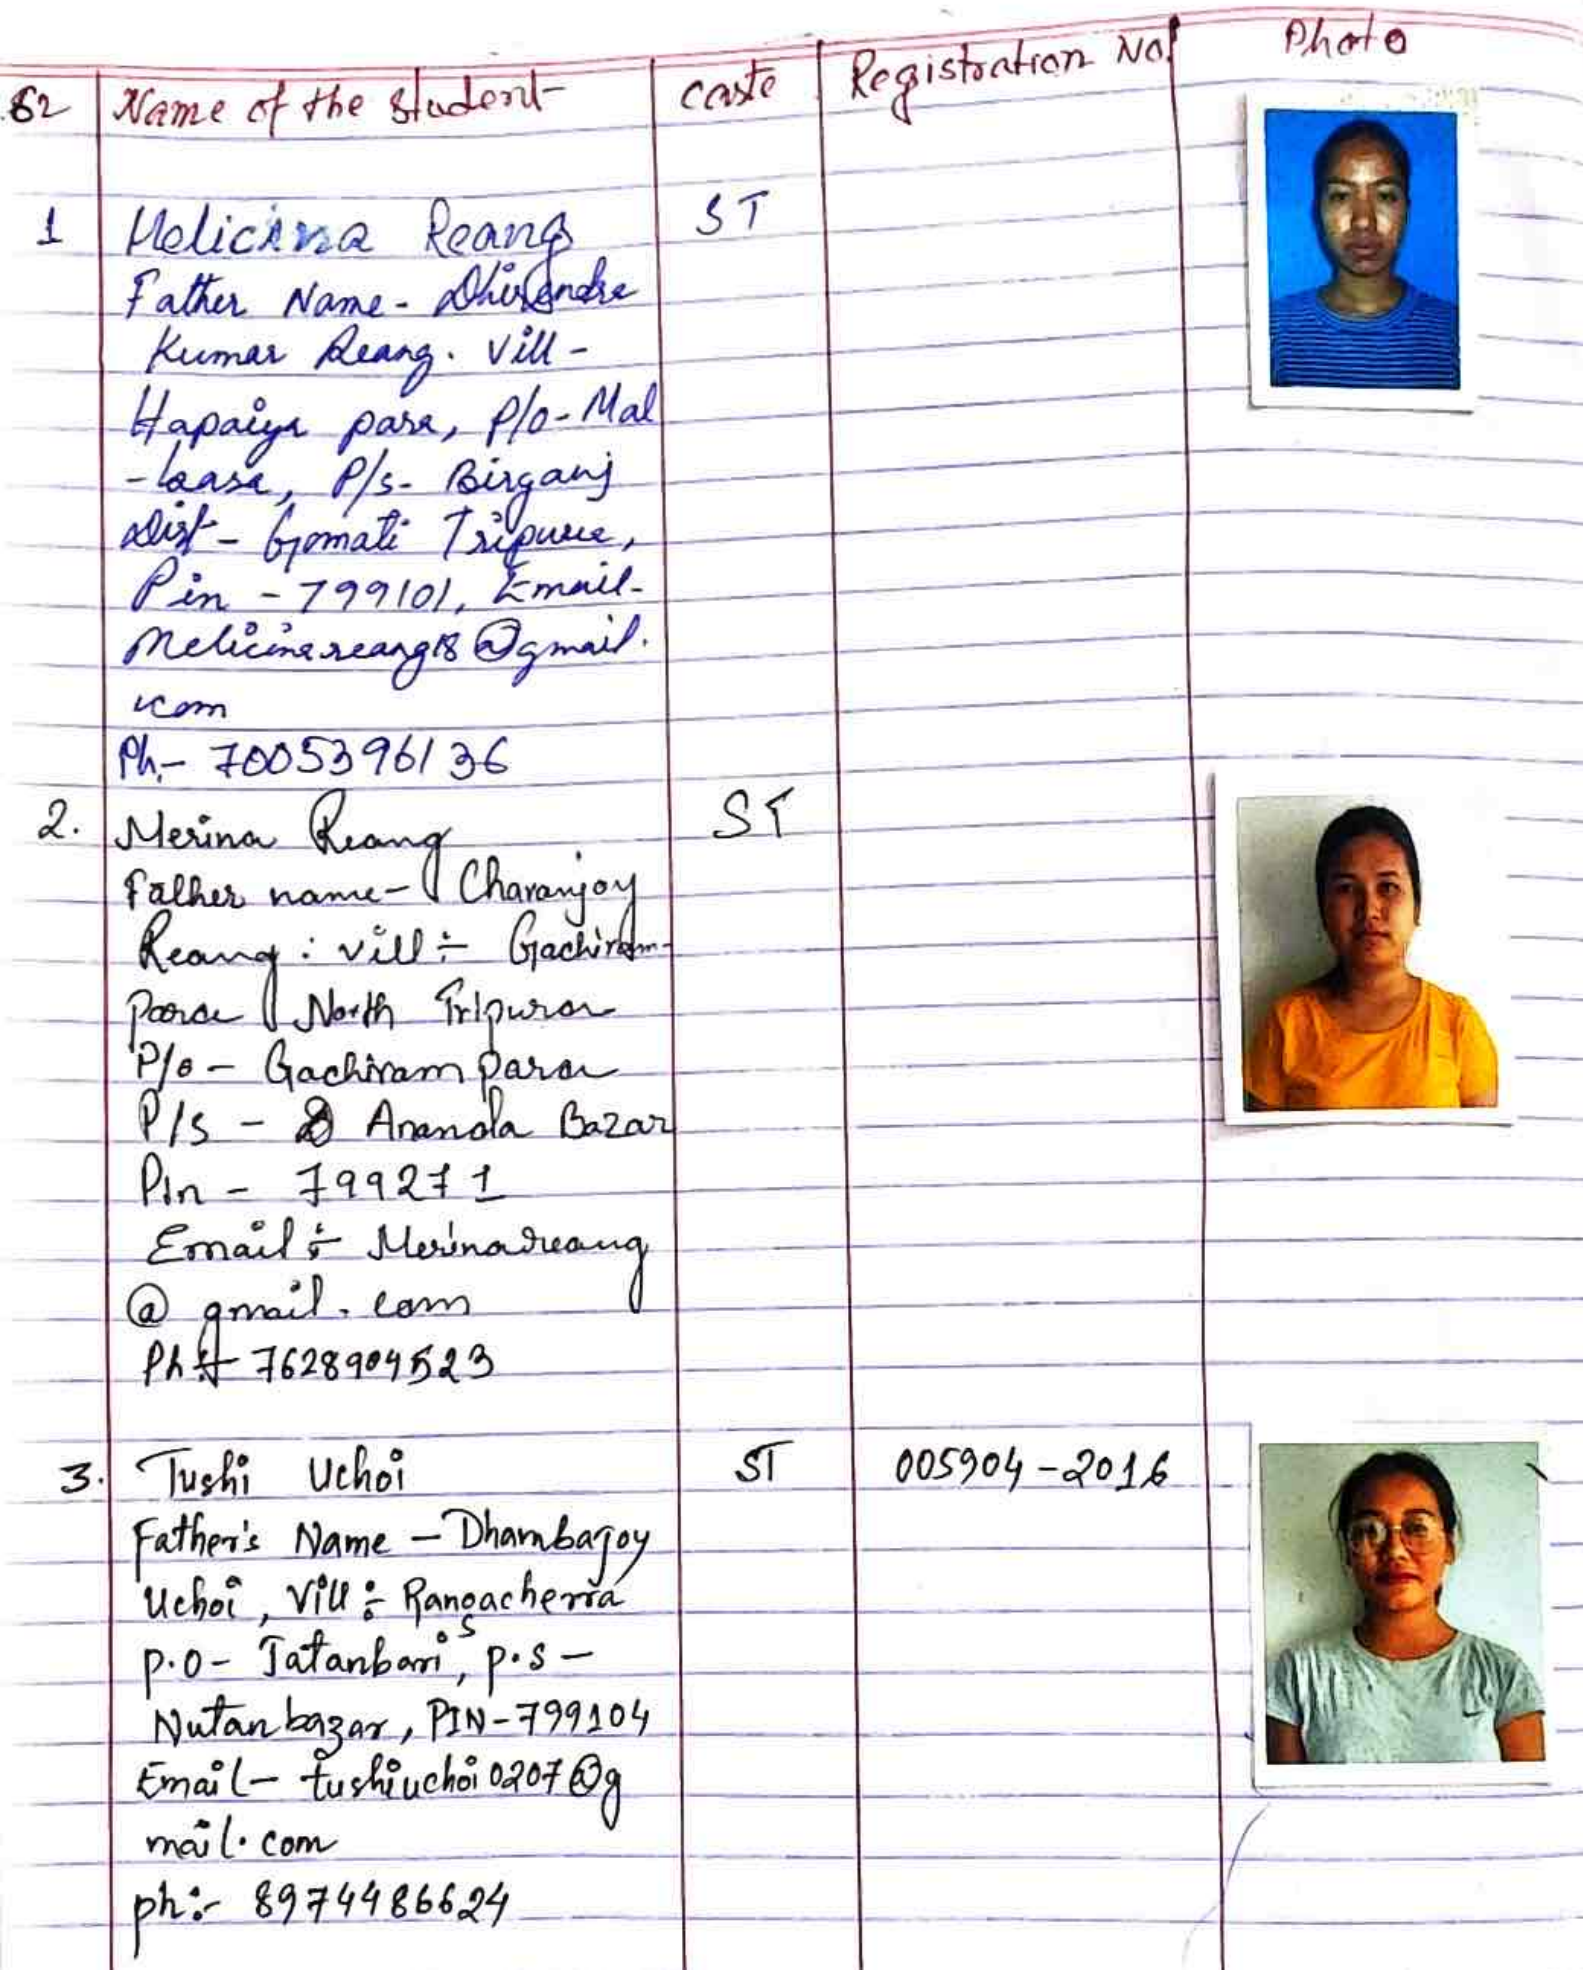 Sl Name of the Student caste Registration No. Photo
1 Melicina Reang ST
Father Name - Dhirendra
Kumar Reang. Vill -
Hapaiya para, P/o - Mal
-basa, P/s - Birganj
Dist - Gomati Tripura,
Pin - 799101, Email -
Melicinareang18@gmail.
com
Ph - 7005396136
2. Merina Reang ST
Father name - Charanjoy
Reang : vill ÷ Gachiram
para North Tripura
P/o - Gachiram para
P/S - Ananda Bazar
Pin - 799271
Email ÷ Merinareang
@ gmail. com
Ph ÷ 7628904523
3. Tushi Uchoi ST 005904-2016
Father's Name - Dhambajoy
Uchoi, Vill ÷ Rangacherra
P.O - Jatanbari, P.S -
Nutan bazar, PIN - 799104
Email - tushiuchoi0207@g
mail.com
ph :- 8974486624